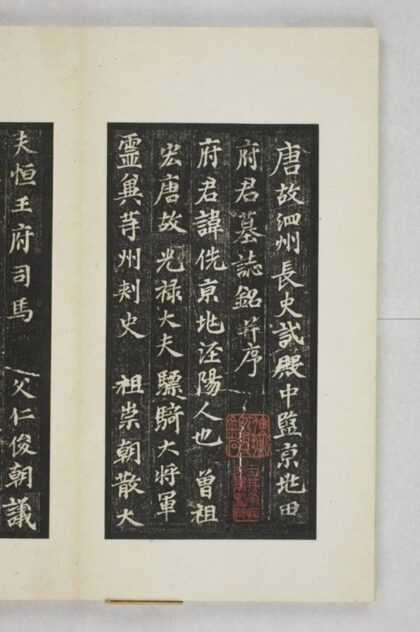 唐故泗州長史試殿中監京兆田
府君墓誌銘并序
府君諱侁京兆涇陽人也 曾祖
宏唐故光祿大夫驃騎大將軍
靈冀等州刺史 祖崇朝散大
夫恒王府司馬 父仁俊朝議